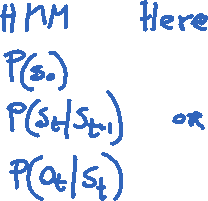 HMM Here
P(s₀)
P(St|St-1) or
P(Ot|St)